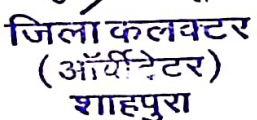 जिला कलक्टर
(ऑर्बीट्रेटर)
शाहपुरा